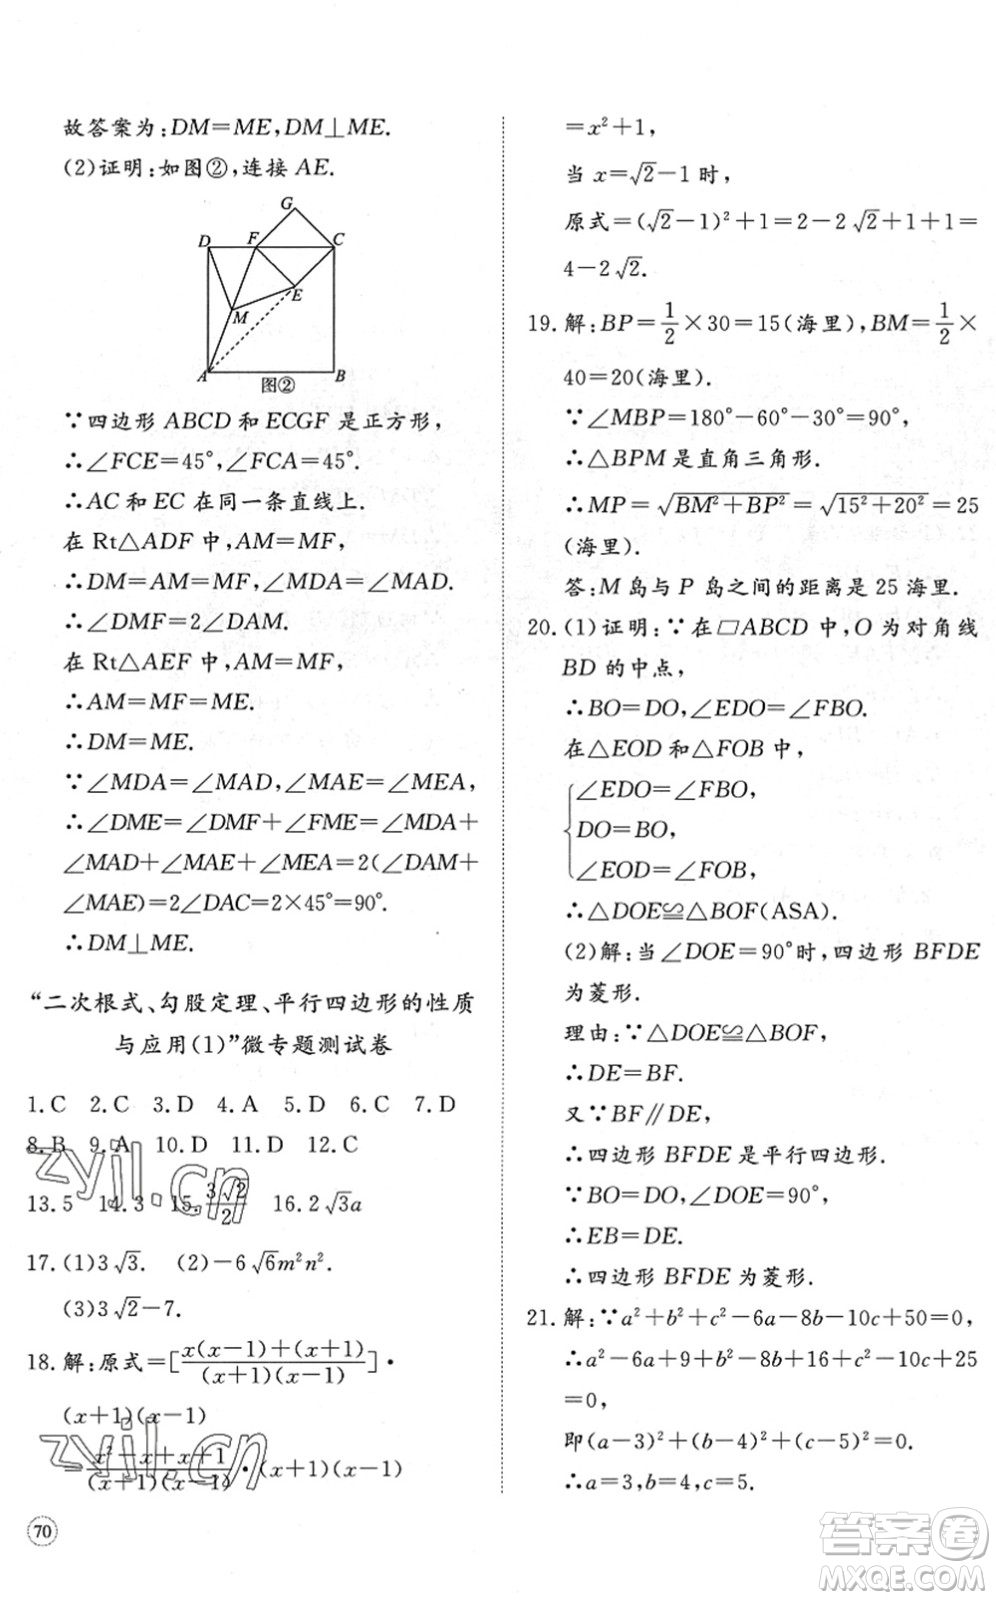 故答案为:DM=ME,DM⊥ME.
(2)证明:如图②,连接 AE.
G
D F C
E
M
A B
图②
∵四边形 ABCD 和 ECGF 是正方形,
∴∠FCE=45°,∠FCA=45°.
∴AC 和 EC 在同一条直线上.
在 Rt△ADF 中,AM=MF,
∴DM=AM=MF,∠MDA=∠MAD.
∴∠DMF=2∠DAM.
在 Rt△AEF 中,AM=MF,
∴AM=MF=ME.
∴DM=ME.
∵∠MDA=∠MAD,∠MAE=∠MEA,
∴∠DME=∠DMF+∠FME=∠MDA+
∠MAD+∠MAE+∠MEA=2(∠DAM+
∠MAE)=2∠DAC=2×45°=90°.
∴DM⊥ME.
“二次根式、勾股定理、平行四边形的性质
与应用(1)”微专题测试卷
1.C 2.C 3.D 4.A 5.D 6.C 7.D
8.B 9.A 10.D 11.D 12.C
13.5 14.3 15.3√2/2 16.2√3a
17.(1)3√3. (2)-6√6m²n².
(3)3√2-7.
18.解:原式=[x(x-1)+(x+1)/(x+1)(x-1)]·
(x+1)(x-1)
=x²-x+x+1/(x+1)(x-1)·(x+1)(x-1)
70
=x²+1,
当 x=√2-1 时,
原式=(√2-1)²+1=2-2√2+1+1=
4-2√2.
19.解:BP=1/2×30=15(海里),BM=1/2×
40=20(海里).
∵∠MBP=180°-60°-30°=90°,
∴△BPM 是直角三角形.
∴MP=√(BM²+BP²)=√(15²+20²)=25
(海里).
答:M 岛与 P 岛之间的距离是 25 海里.
20.(1)证明:∵在▱ABCD 中,O 为对角线
BD 的中点,
∴BO=DO,∠EDO=∠FBO.
在△EOD 和△FOB 中,
∠EDO=∠FBO,
DO=BO,
∠EOD=∠FOB,
∴△DOE≌△BOF(ASA).
(2)解:当∠DOE=90°时,四边形 BFDE
为菱形.
理由:∵△DOE≌△BOF,
∴DE=BF.
又∵BF∥DE,
∴四边形 BFDE 是平行四边形.
∵BO=DO,∠DOE=90°,
∴EB=DE.
∴四边形 BFDE 为菱形.
21.解:∵a²+b²+c²-6a-8b-10c+50=0,
∴a²-6a+9+b²-8b+16+c²-10c+25
=0,
即(a-3)²+(b-4)²+(c-5)²=0.
∴a=3,b=4,c=5.
zyjl.cn
zyjl.cn
答案卷
MXQE.COM